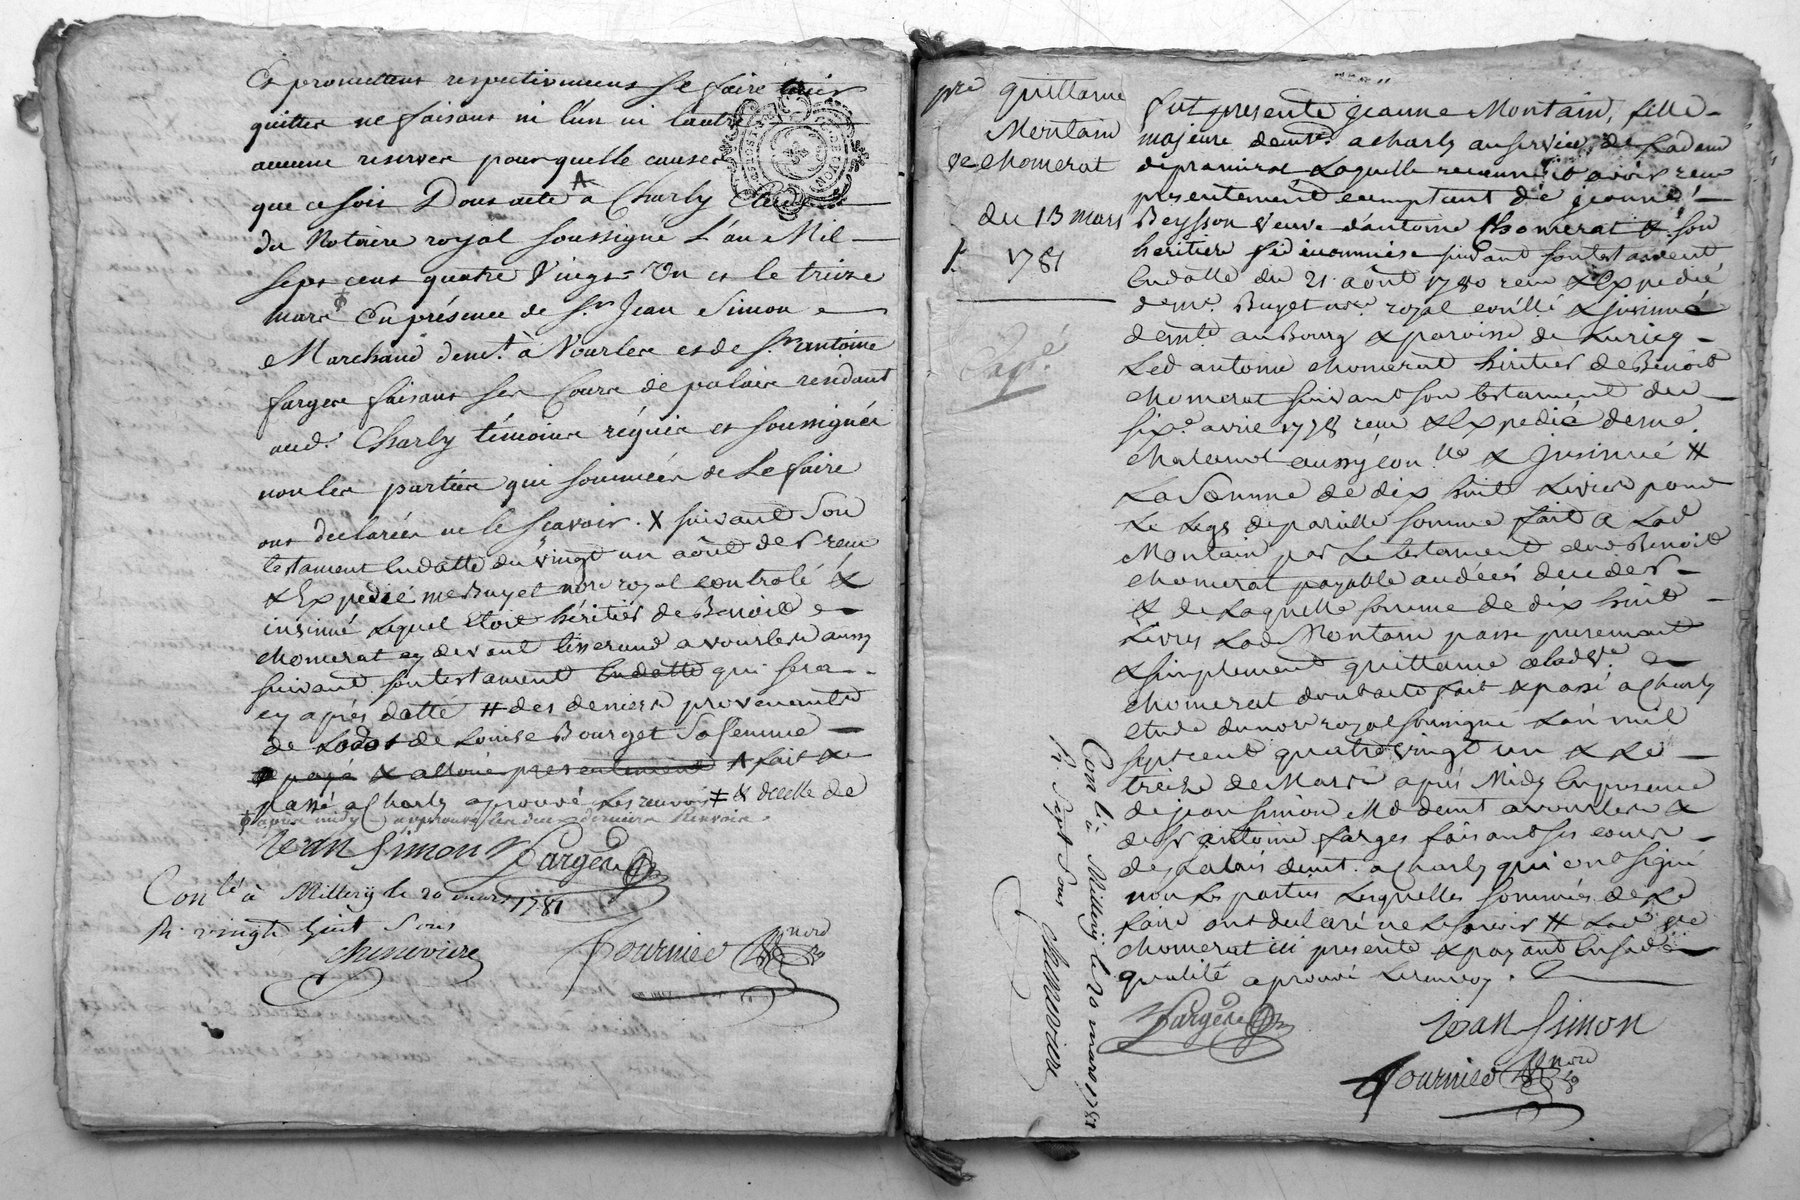 Et promettent respectivement se faire tenir
quitter ne faisant ni l'un ni lautre
aucune reserver pour quelle causer
que ce soit Dont acte A à Charly Etude
du Notaire royal soussigné L'an Mil
sept cens quatre Vingt Un et le treize
mars En présence de Sr Jean Simon
Marchand demt. à Vourler et de Sr antoine
farger faisant ser Cours de palais residant
aud. Charly témoins réquis et soussignés
non les parties qui sommées de Le faire
ont declarées ne le scavoir. X suivant son
testament Endatte du vingt un aôut dr recu
& Expedié me Buyet nore royal controlé &
insinué Lequel Etoit héritier de Benoit
chomerat cy devant tisserand a vourler aussy
suivant son testament Endatte qui sera
cy après datté # des deniers provenants
de La dot de Louise Bourget Sa femme
payé & alloué presentement A fait &
passé a Charly aprouvé Les renvois # & decelle de
après midy approuvé les deux derniers Renvois.
Jean Simon Fargere
Conlé à Millery le 20 mars 1781
R. vingt huit Sous
cheneviere Fournier nore
pre quittance
Montain
ve chomerat
du 13 mars
1781
fut presente jeanne Montain, fille
majeure demte. a charly au service de La dame
depramiral Laquelle reconnoit avoir recu
presentement comptant de jeanne
Beysson veuve d'antoine Chomerat & son
heritiere fidecommise suivant son testament
Endatte du 21 aôut 1780 recu & Expedié
deme. Buyet nore royal conllé & jnsinué
demte au Bourg & paroisse de
Led antoine chomerat héritier de Benoit
chomerat suivant son testament du
sixe. avril 1778 recu & Expedié de me.
aussy conllé & jnsinué #
La Somme de dix huit Livres pour
Le Legs de pareille somme fait a Lad
Montain par Le testament dud Benoit
chomerat payable au décès
& de Laquelle somme de dix huit
Livres Lad Montain passe purement
& simplement quittance a lad ve.
chomerat dont acte fait & passé a Charly
etude du nore royal soussigné L'an mil
sept cent quatre vingt un & Le
treize de Mars après Midy En presence
de jean Simon Md demt a vourler &
de Sr antoine farges faisant ses cours
de palais demt. a Charly qui ont signé
non Les parties Lesquelles sommés de Le
faire ont declaré ne Le scavoir # Lad ve
chomerat ici presente & payant En sad
qualité aprouvé Le renvoy.
Fargere Jean Simon
Fournier nore
Conlé à Millery le 20 mars 1781
R. Sept Sous cheneviere